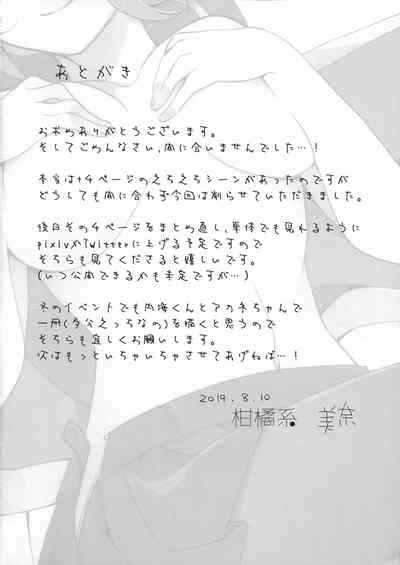 あとがき
お求めありがとうございます。
そしてごめんなさい、間に合いませんでした…！
本当は+チページのえちえちシーンがあったのですが
どうしても間に合わず今回は削らせていただきました。
後日そのチページをまとめ直し、単体でも見れるように
pixivかTwitterに上げる予定ですので
そちらも見てくださると嬉しいです。
(いつ公開できるかも未定ですが…)
次のイベントでも内海くんとアカネちゃんで
一冊(多分えっちなの)を描くと思うので
そちらも宜しくお願いします。
次はもっといちゃいちゃさせてあげねば…！
2019.8.10
柑橘系 美奈